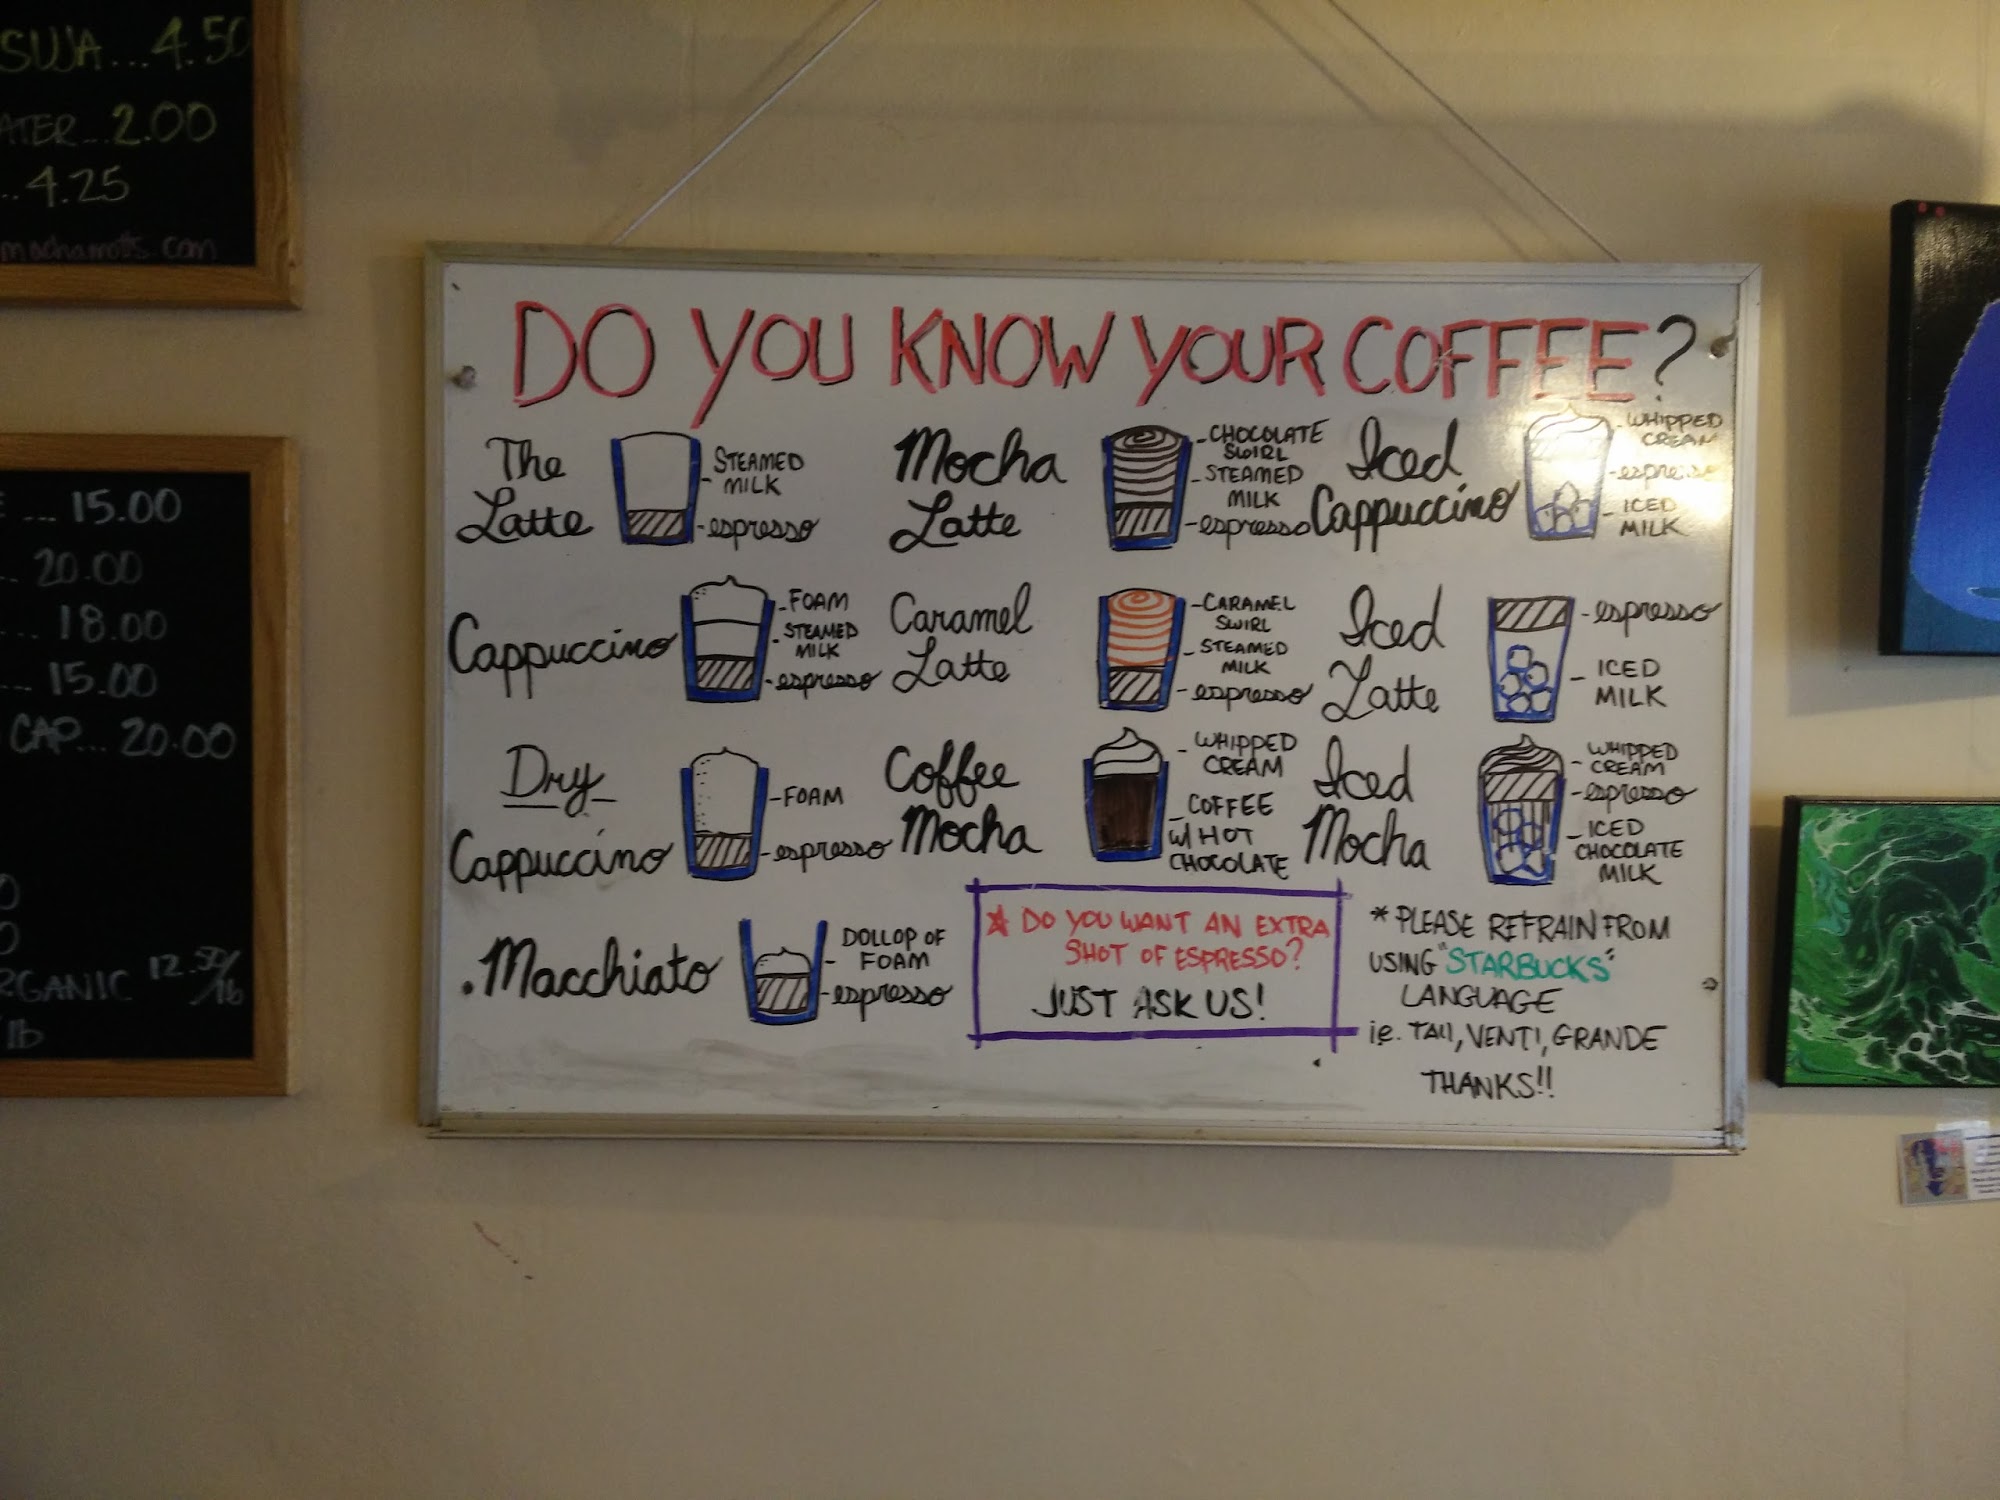 SUJA...4.50
...2.00
...4.25
mochamotts.com
... 15.00
.. 20.00
... 18.00
... 15.00
CAP... 20.00
12.50/lb
/lb
DO YOU KNOW YOUR COFFEE?
The
Latte
STEAMED
MILK
espresso
Cappuccino
FOAM
STEAMED
MILK
espresso
Dry
Cappuccino
FOAM
espresso
Macchiato
DOLLOP OF
FOAM
espresso
Mocha
Latte
CHOCOLATE
SWIRL
STEAMED
MILK
espresso
Caramel
Latte
CARAMEL
SWIRL
STEAMED
MILK
espresso
Coffee
Mocha
WHIPPED
CREAM
COFFEE
W/ HOT
CHOCOLATE
Iced
Cappuccino
WHIPPED
CREAM
espresso
ICED
MILK
Iced
Latte
espresso
ICED
MILK
Iced
Mocha
WHIPPED
CREAM
espresso
ICED
CHOCOLATE
MILK
* DO YOU WANT AN EXTRA
SHOT OF ESPRESSO?
JUST ASK US!
* PLEASE REFRAIN FROM
USING "STARBUCKS"
LANGUAGE
ie. TALL, VENTI, GRANDE
THANKS!!